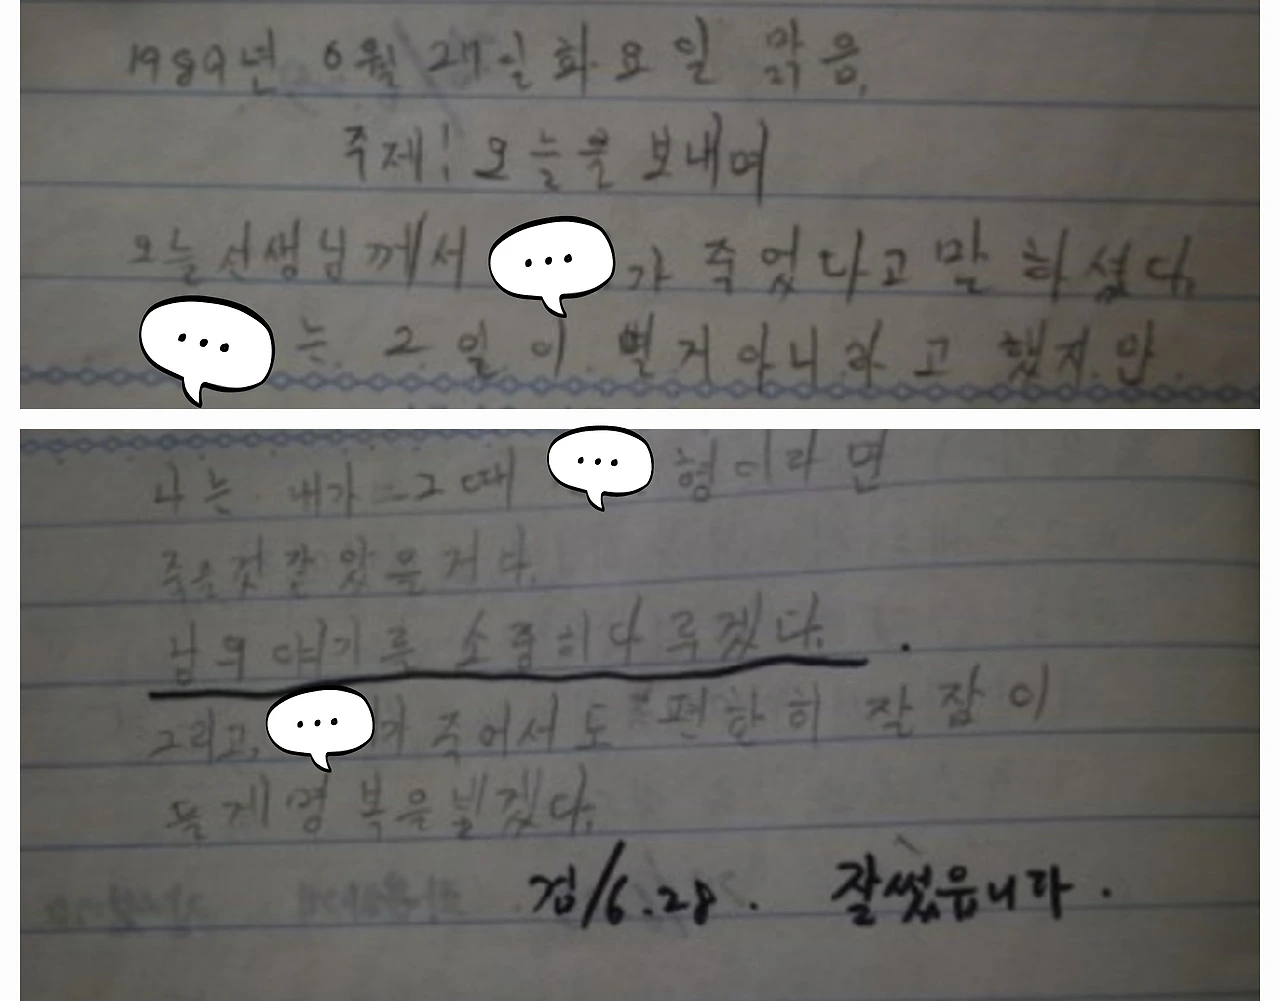 1989년 6월 27일 화요일 맑음.
주제: 오늘을 보내며
오늘 선생님께서 ... 가 죽었다고 말 하셨다.
... 는 그 일이 별거 아니라고 했지만
나는 내가 그때 ... 형이라면
죽은것 같았을 거다.
남의 얘기를 소중히 다루겠다.
그리고, ... 가 죽어서도 편한히 잘 잠이
들게 명복을 빌겠다.
검/6.28. 잘썼읍니다.